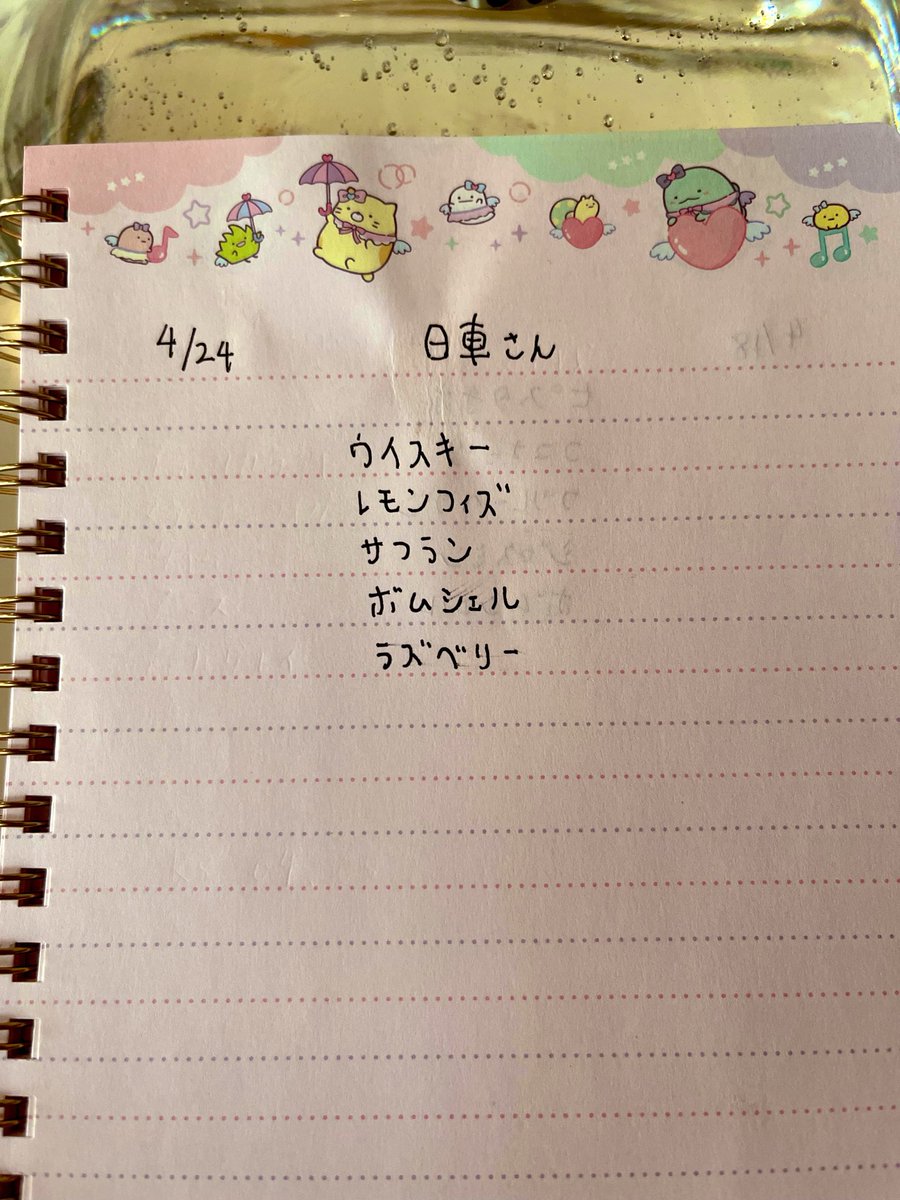 4/24 日車さん
ウイスキー
レモンフィズ
サフラン
ボムシェル
ラズベリー